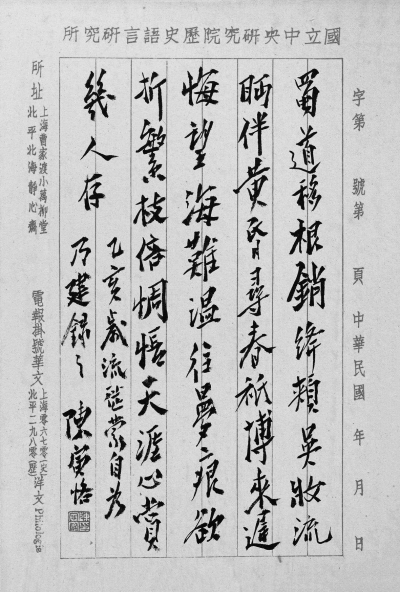 國立中央研究院歷史語言研究所
字第 號第 頁 中華民國 年 月 日
蜀道移根銷絳頰吳妝流
眄伴黃昏尋春祗博來遲
悔望海難溫往夢痕欲
折繁枝倍惆悵天涯心賞
幾人存
乙亥歲流 蒙自為
乃建錄之 陳寅恪
所址 上海曹家渡小萬柳堂
北平北海靜心齋
電報掛號華文 上海零六七零(史)
北平二九八零(歷)
洋文 Philologia